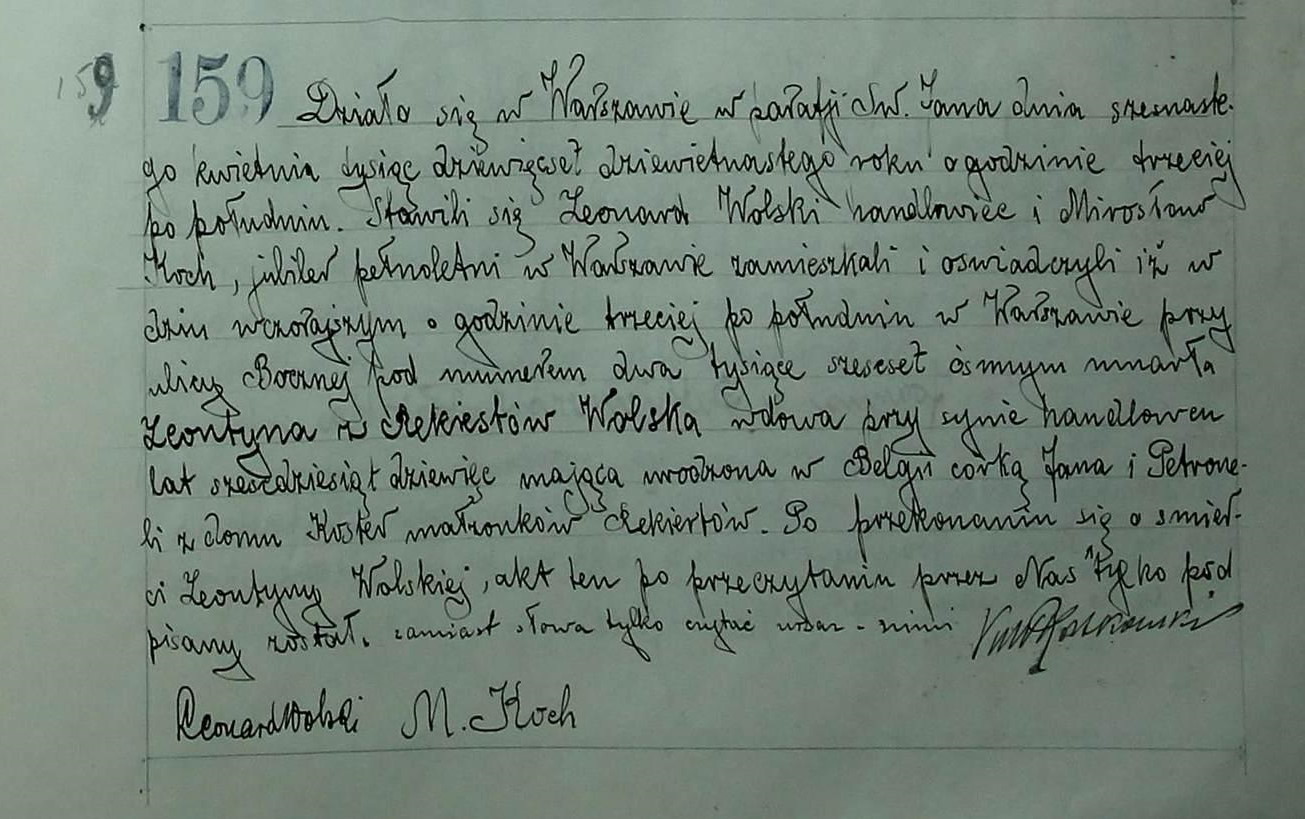 159 159 Działo się w Warszawie w parafji Św. Jana dnia szesnaste-
go kwietnia tysiąc dziewięćset dziewietnastego roku o godzinie trzeciej
po południu. Stawili się Leonard Wolski handlowiec i Mirosław
Koch, jubiler pełnoletni w Warszawie zamieszkali i oswiadczyli iż w
dniu wczorajszym o godzinie trzeciej po południu w Warszawie przy
ulicy Bocznej pod numerem dwa tysiące szescset ósmym umarła
Leontyna z Rekiertów Wolska wdowa przy synie handlowcu
lat szescdziesiąt dziewięc mająca urodzona w Belgii córka Jana i Petrone-
li z domu Koster małżonków Rekiertów. Po przekonaniu się o smier-
ci Leontyny Wolskiej, akt ten po przeczytaniu przez Nas tylko pod
pisany został. zamiast słowa tylko czytać nimi
Leonard Wolski M. Koch